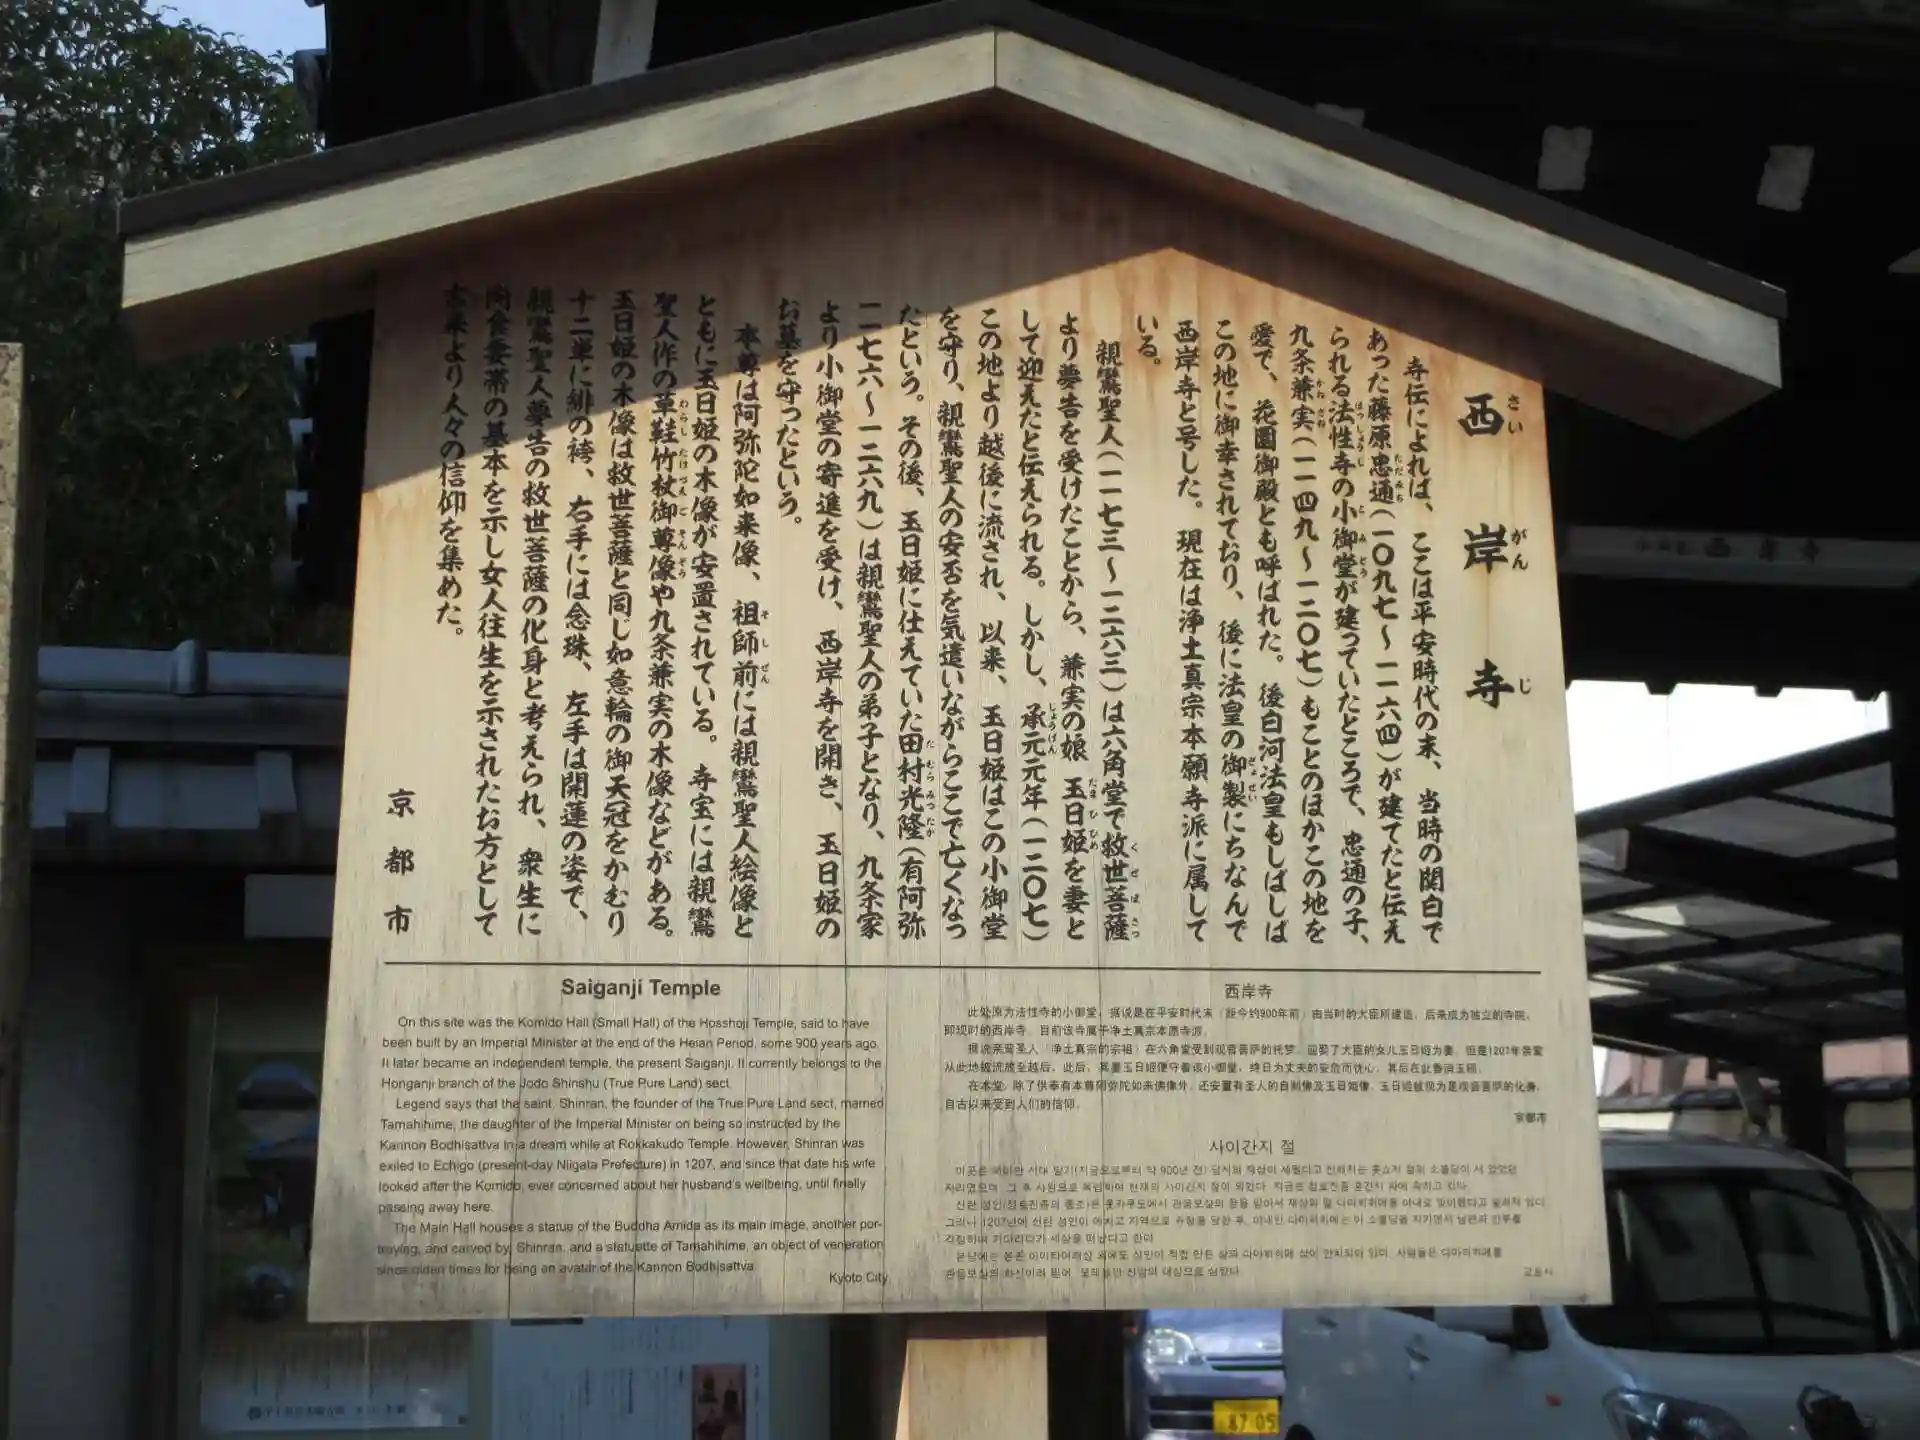 西岸寺
さいがんじ
寺伝によれば、ここは平安時代の末、当時の関白で
あった藤原忠通(一〇九七〜一一六四)が建てたと伝え
られる法性寺の小御堂が建っていたところで、忠通の子、
九条兼実(一一四九〜一二〇七)もことのほかこの地を
愛で、花園御殿とも呼ばれた。後白河法皇もしばしば
この地に御幸されており、後に法皇の御製にちなんで
西岸寺と号した。現在は浄土真宗本願寺派に属して
いる。
親鸞聖人(一一七三〜一二六三)は六角堂で救世菩薩
より夢告を受けたことから、兼実の娘 玉日姫を妻と
して迎えたと伝えられる。しかし、承元元年(一二〇七)
この地より越後に流され、以来、玉日姫はこの小御堂
を守り、親鸞聖人の安否を気遣いながらここで亡くなっ
たという。その後、玉日姫に仕えていた田村光隆(有阿弥
一一七六〜一二六九)は親鸞聖人の弟子となり、九条家
より小御堂の寄進を受け、西岸寺を開き、玉日姫の
お墓を守ったという。
本尊は阿弥陀如来像、祖師前には親鸞聖人絵像と
ともに玉日姫の木像が安置されている。寺宝には親鸞
聖人作の草鞋竹杖御尊像や九条兼実の木像などがある。
玉日姫の木像は救世菩薩と同じ如意輪の御天冠をかむり
十二単に緋の袴、右手には念珠、左手は開蓮の姿で、
親鸞聖人夢告の救世菩薩の化身と考えられ、衆生に
肉食妻帯の基本を示し女人往生を示されたお方として
古来より人々の信仰を集めた。
京都市
Saiganji Temple
On this site was the Komido Hall (Small Hall) of the Hosshoji Temple, said to have
been built by an Imperial Minister at the end of the Heian Period, some 900 years ago.
It later became an independent temple, the present Saiganji. It currently belongs to the
Honganji branch of the Jodo Shinshu (True Pure Land) sect.
Legend says that the saint, Shinran, the founder of the True Pure Land sect, married
Tamahihime, the daughter of the Imperial Minister on being so instructed by the
Kannon Bodhisattva in a dream while at Rokkakudo Temple. However, Shinran was
exiled to Echigo (present-day Niigata Prefecture) in 1207, and since that date his wife
looked after the Komido, ever concerned about her husband's wellbeing, until finally
passing away here.
The Main Hall houses a statue of the Buddha Amida as its main image, another por-
traying, and carved by, Shinran, and a statuette of Tamahihime, an object of veneration
since olden times for being an avatar of the Kannon Bodhisattva.
Kyoto City
西岸寺
此处原为法性寺的小御堂，据说是在平安时代末（距今约900年前）由当时的大臣所建造，后来成为独立的寺院，
即现时的西岸寺。目前该寺属于净土真宗本愿寺派。
据说亲鸾圣人（净土真宗的宗祖）在六角堂受到观音菩萨的托梦，迎娶了大臣的女儿玉日姬为妻。但是1207年亲鸾
从此地被流放至越后，此后，其妻玉日姬便守着该小御堂，终日为丈夫的安危而忧心，其后在此香消玉殒。
在本堂，除了供奉有本尊阿弥陀如来佛像外，还安置有圣人的自制像及玉日姬像。玉日姬被视为是观音菩萨的化身，
自古以来受到人们的信仰。
京都市
사이간지 절
교토시
西岸寺
8705